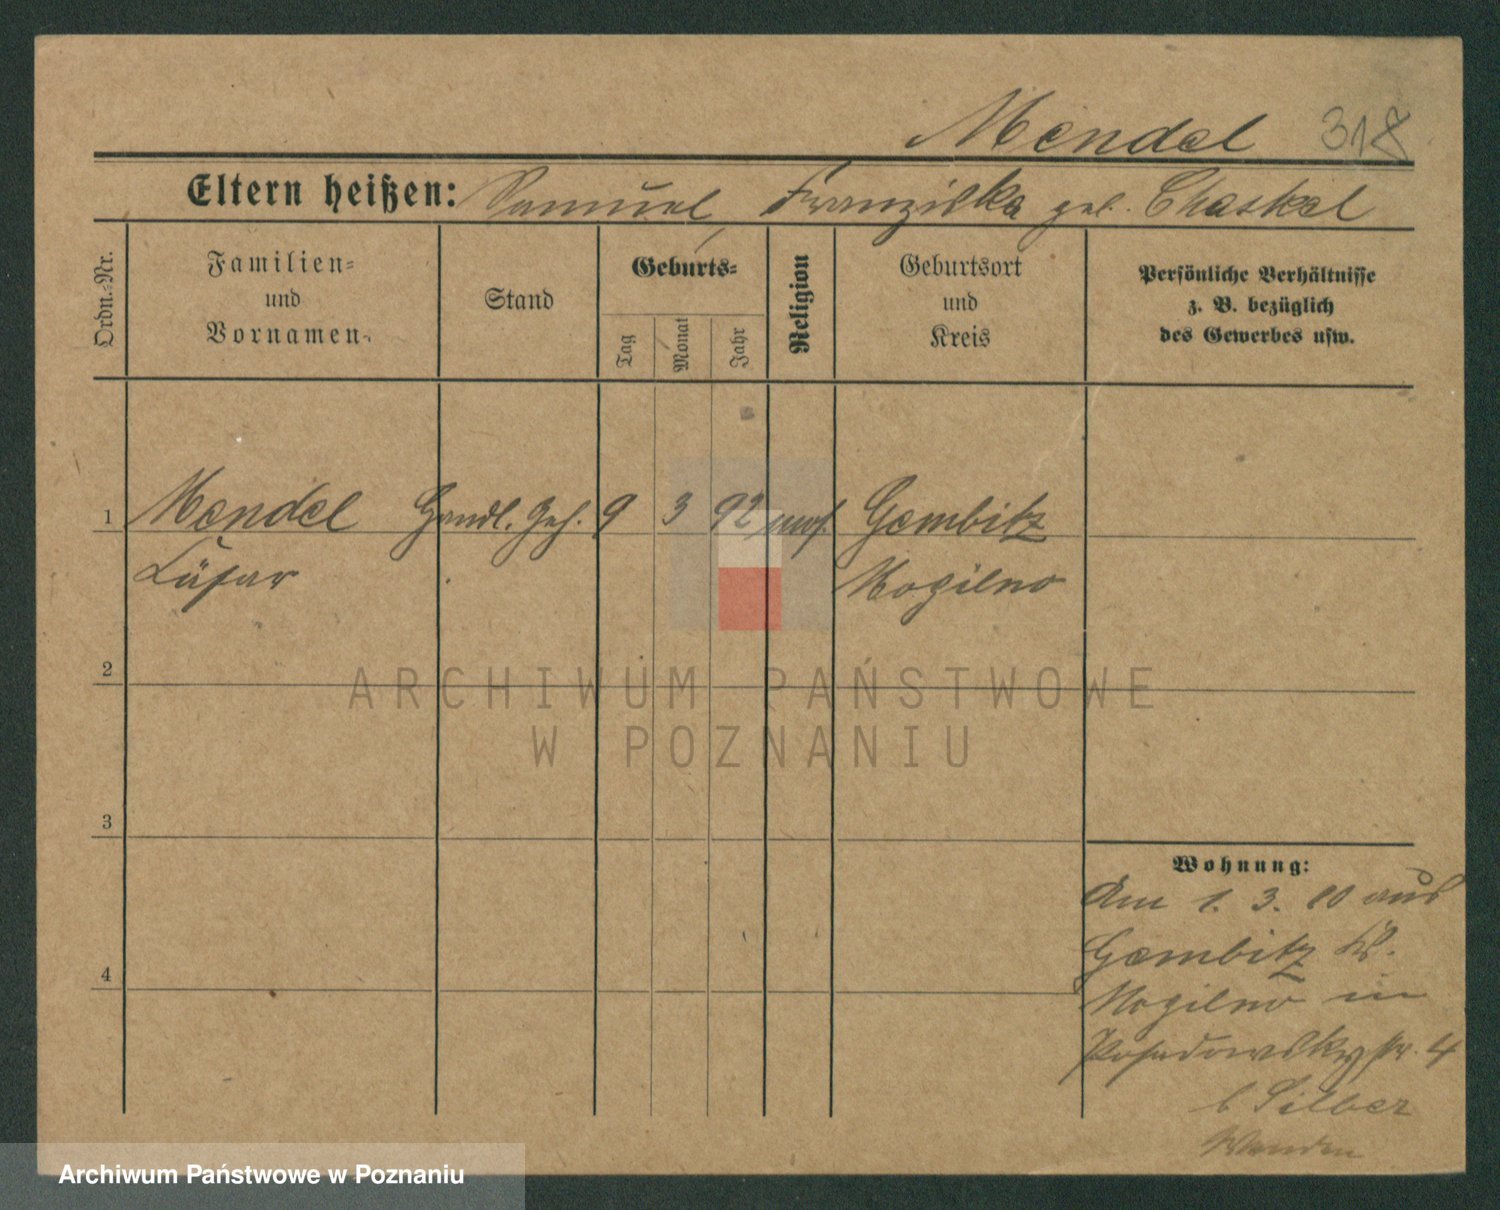 Mendel 318
Eltern heißen: Samuel Franziska geb. Chaskel
Ordn.-Nr.
Familien-
und
Vornamen.
Stand
Geburts-
Tag
Monat
Jahr
Religion
Geburtsort
und
Kreis
Persönliche Verhältnisse
z. B. bezüglich
des Gewerbes usw.
1 Mendel Handl. Geh. 9 3 92 mos. Gembitz
Mogilno
2
3
4
Wohnung:
Am 1. 3. 10 aus
Gembitz Kr.
Mogilno in
Posadowskystr. 4
b Silber
ARCHIWUM PAŃSTWOWE
W POZNANIU
Archiwum Państwowe w Poznaniu